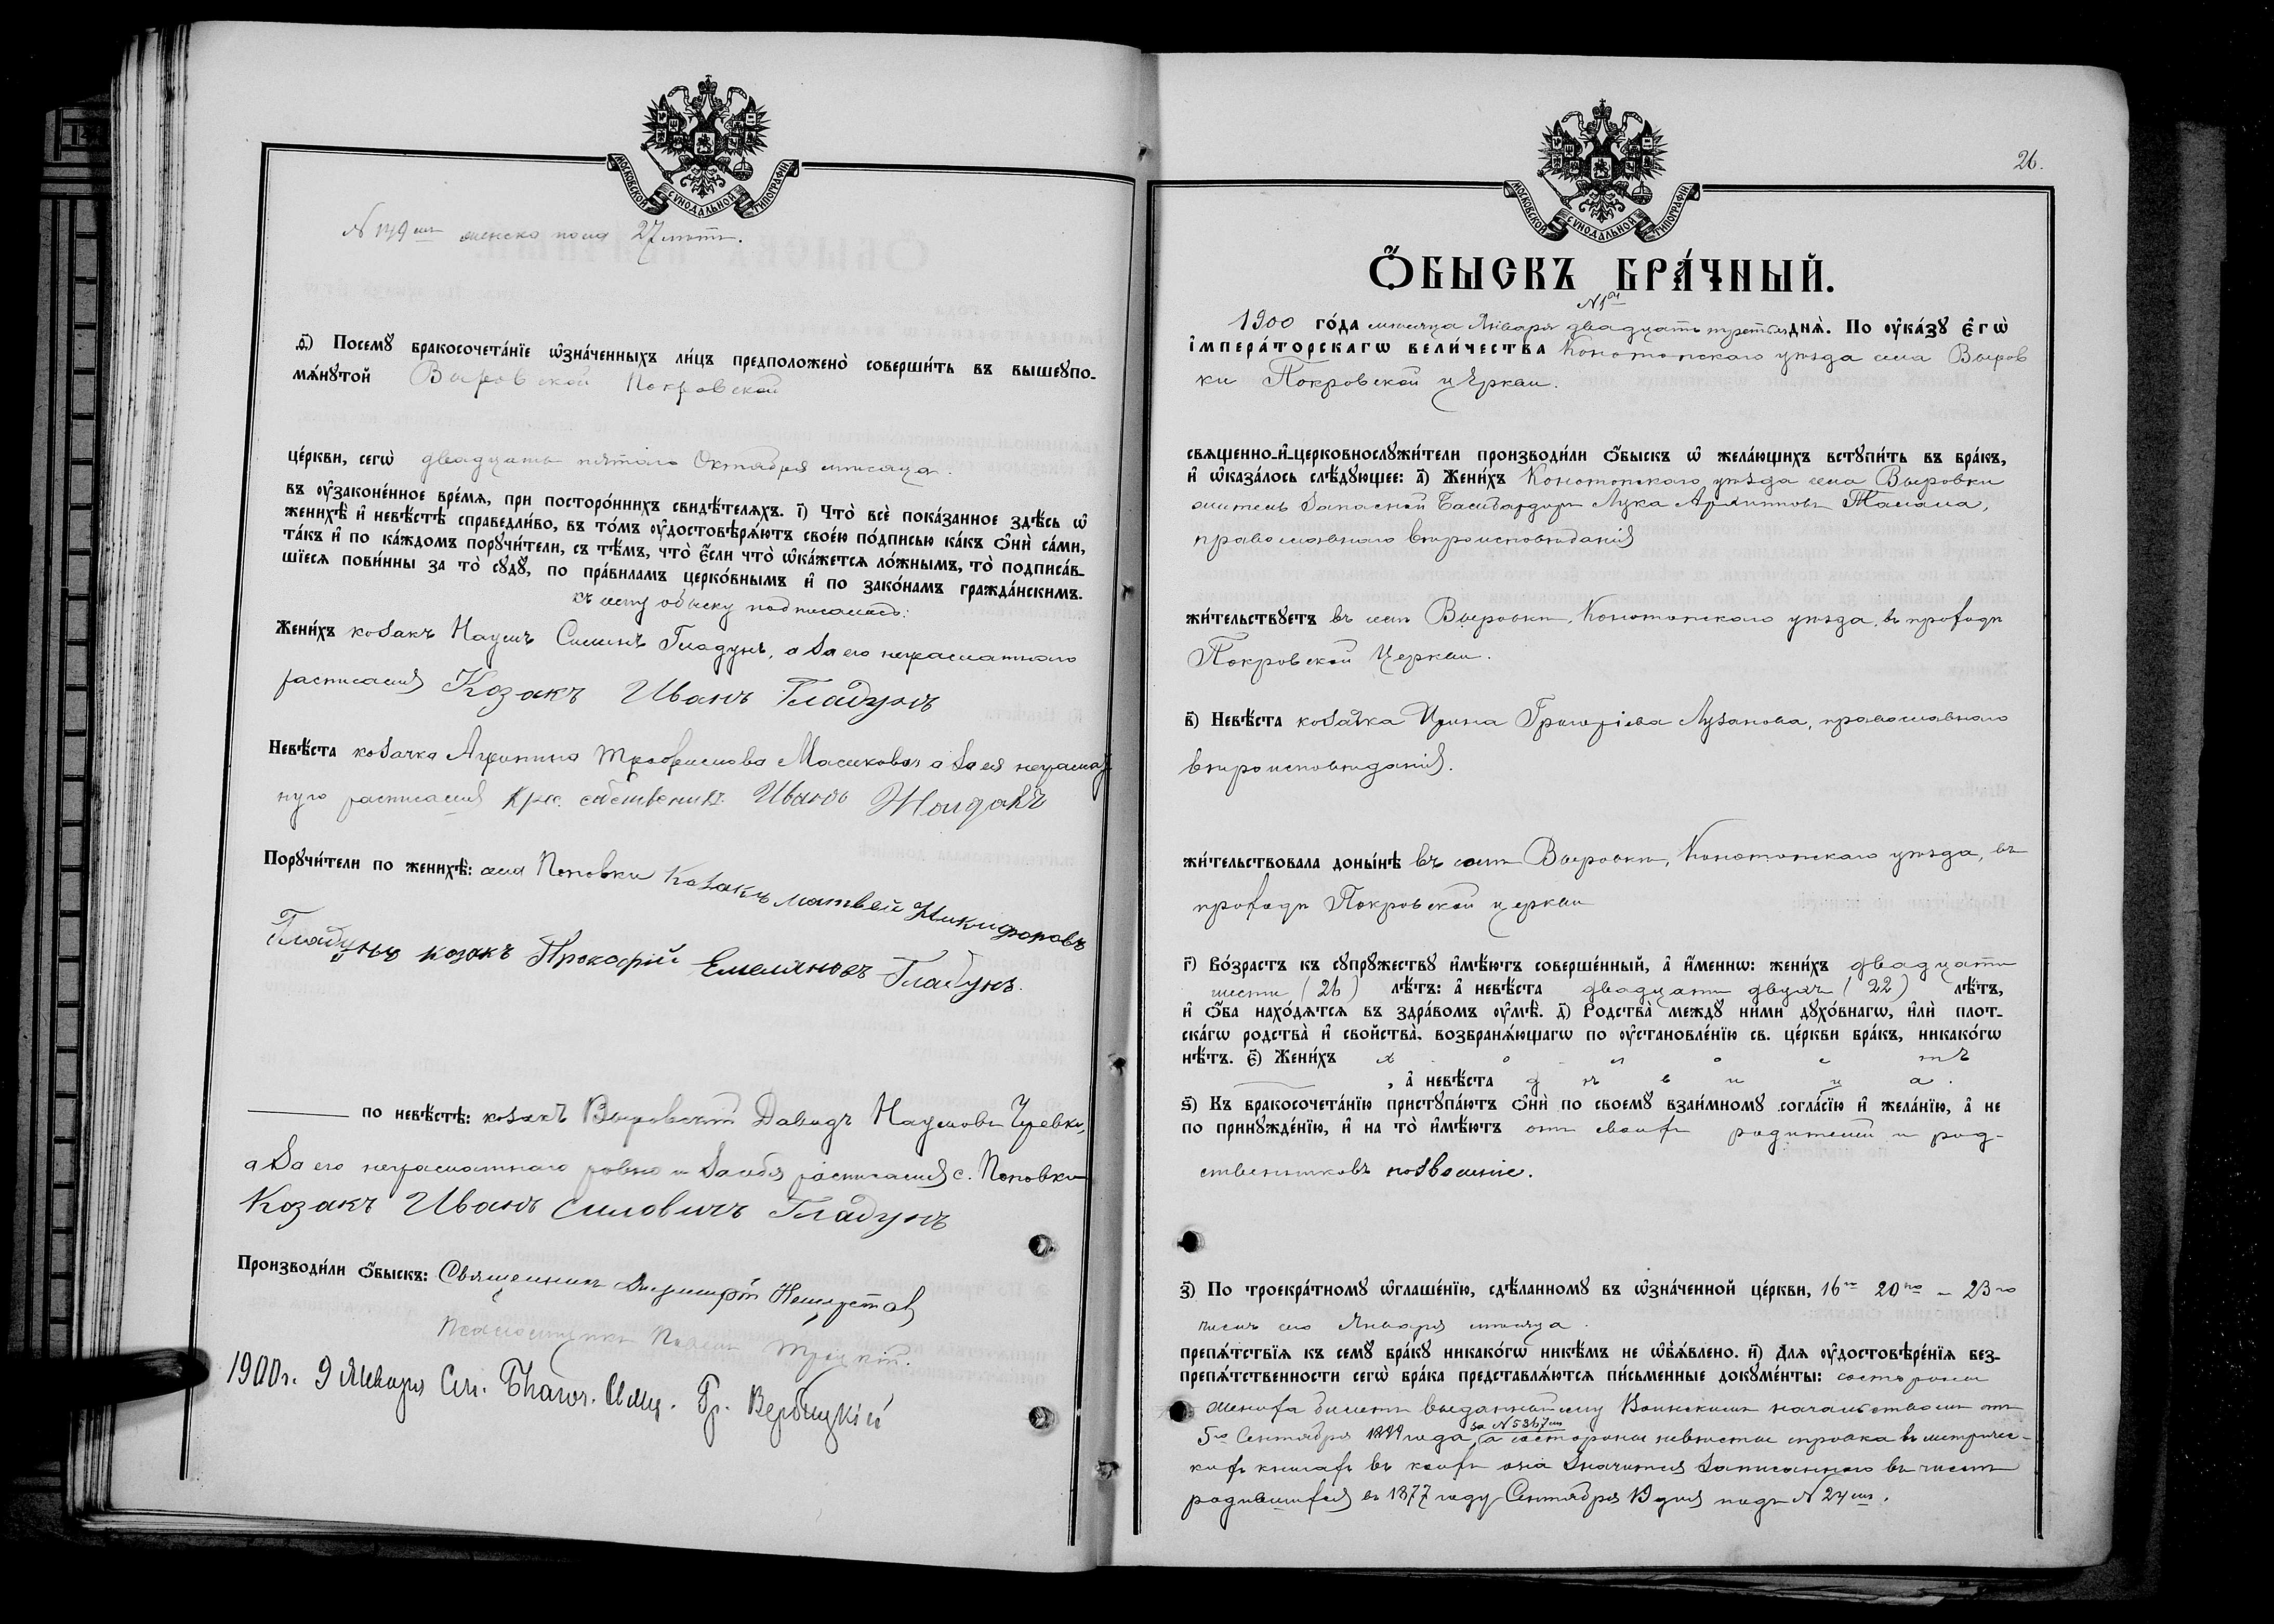 МОСКОВСКОЙ СУНОДАЛЬНОЙ ТИПОГРАФІИ
№ 149 мъ женска пола 27 мътъ.
д҃) Посемꙋ бракосочета́нїе ѡ҆зна́ченныхъ ли́цъ предположено̀ соверши́ть въ вышеꙋпо-
мѧ́нꙋтой Выровской Покровской
це́ркви, сегѡ̀ двадцать пятаго Октября мѣсяца.
въ ᲂу҆законе́нное вре́мѧ, при посторо́ннихъ свидѣ́телѧхъ. і҃) Что̀ всѐ пока́занное здѣ́сь ѡ҆
женихѣ̀ и҆ невѣ́стѣ справедли́во, въ то́мъ ᲂу҆достовѣрѧ́ютъ свое́ю по́дписью ка́къ ѻ҆нѝ са́ми,
та́къ и҆ по ка́ждомъ порꙋчи́тели, съ тѣ́мъ, что̀ є҆́сли что̀ ѡ҆ка́жетсѧ ло́жнымъ, то̀ подписа́в-
шїесѧ пови́нны за то̀ сꙋдꙋ̀, по пра́виламъ церко́внымъ и҆ по зако́намъ гражда́нскимъ.
къ сему обыску подписались:
Жени́хъ козакъ Наумъ Гладунъ, а за его неграматнаго
расписался Козакъ Иванъ Гладунъ
Невѣ́ста козачка Трофимова а за ея неграмат-
ную расписался Иванъ Жолдакъ
Порꙋчи́тели по женихѣ̀: села Поповки Козакъ Матвей Никифоровъ
Гладунъ козакъ Прокофій Емельяновъ Гладунъ.
по невѣ́стѣ: козакъ Выровскій Давидъ Наумовъ
а за его неграматнаго ровно и за себя расписался с. Поповки
Козакъ Иванъ Силовичъ Гладунъ
Производи́ли ѻ҆́быскъ: Священникъ Димитрій
Псаломщикъ Троцкій.
1900 г. 9 Января Бл. Гр. Вербицкій
26.
МОСКОВСКОЙ СУНОДАЛЬНОЙ ТИПОГРАФІИ
Ѻ҆́БЫСКЪ БРА́ЧНЫЙ.
№ 1 й
1900 го́да мѣсяца Января двадцать третьяго днѧ̀. По ᲂу҆ка́зꙋ Е҆гѡ̀
І҆мпера́торскагѡ вели́чества Конотопскаго уѣзда села Выров
ки Покровской церкви.
свѧщенно-и҆-церковнослꙋжи́тели производи́ли ѻ҆́быскъ ѡ҆ жела́ющихъ встꙋпи́ть въ бра́къ,
и҆ ѡ҆каза́лось слѣ́дꙋющее: а҃) Жени́хъ Конотопскаго уѣзда села Выровки
житель Запасной Лука Архиповъ Талала,
православнаго вѣроисповѣданія
жи́тельствꙋетъ въ селѣ Выровкѣ, Конотопскаго уѣзда, въ приходѣ
Покровской Церкви.
в҃) Невѣ́ста козачка Ирина Григоріева Лузанова, православнаго
вѣроисповѣданія.
жи́тельствовала доны́нѣ въ селѣ Выровкѣ, Конотопскаго уѣзда, въ
приходѣ Покровской церкви
г҃) Во́зрастъ къ сꙋпрꙋ́жествꙋ и҆мѣ́ютъ соверше́нный, а҆ и҆́меннѡ: жени́хъ двадцати
шести (26) лѣ́тъ: а҆ невѣ́ста двадцати двухъ (22) лѣ́тъ,
и҆ ѻ҆́ба нахо́дѧтсѧ въ здра́вомъ ᲂу҆мѣ̀. д҃) Родства̀ междꙋ̀ ни́ми дꙋхо́внагѡ, и҆лѝ плот-
ска́гѡ родства̀ и҆ свойства̀, возбранѧ́ющагѡ по ᲂу҆становле́нїю св. це́ркви бра́къ, никако́гѡ
нѣ́тъ. є҃) Жени́хъ х о л о с т ъ
, а҆ невѣ́ста д ѣ в и ц а.
ѕ҃) Къ бракосочета́нїю пристꙋпа́ютъ ѻ҆нѝ по своемꙋ̀ взаи́мномꙋ согла́сїю и҆ жела́нїю, а҆ не
по принꙋжде́нїю, и҆ на то̀ и҆мѣ́ютъ отъ своихъ родителей и род-
ственниковъ позволеніе.
з҃) По троекра́тномꙋ ѡ҆глаше́нїю, сдѣ́ланномꙋ въ ѡ҆зна́ченной це́ркви, 16го 20го и 23го
чиселъ сего Января мѣсяца.
препѧ́тствїѧ къ семꙋ̀ бра́кꙋ никако́гѡ никѣ́мъ не ѡ҆б̾ѧ́влено. и҃) Длѧ ᲂу҆достовѣре́нїѧ без-
препѧ́тственности сегѡ̀ бра́ка представлѧ́ютсѧ пи́сьменные докꙋме́нты: со стороны
жениха билетъ выданный ему Воинскимъ начальствомъ отъ
5го Сентября 1899 года за № 5367 мъ, а со стороны невѣсты справка въ метричес-
кихъ книгахъ въ коихъ она значится записанною въ числѣ
родившихся въ 1877 году Сентября 19 дня подъ № 24 мъ.